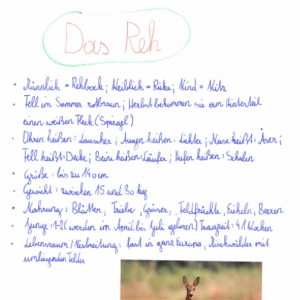 Das Reh
• Männlich = Rehbock; Weiblich = Ricke; Kind = Kitz
• Fell im Sommer rotbraun; Herbst bekommen sie am Hinterteil
einen weißen Fleck (Spiegel)
• Ohren heißen: Lauscher; Augen heißen: Lichter; Nase heißt: Äser;
Fell heißt: Decke; Beine heißen: Läufer; Hufen heißen: Schalen
• Größe: bis zu
• Gewicht: zwischen 15 und 30 kg
• Nahrung: Blätter, Triebe, Gräser, Feldfrüchte, Eicheln, Beeren
• Junge: 1-2 (werden im April bis Juli geboren) Tragzeit: 41 Wochen
• Lebensraum/Verbreitung: fast in ganz Europa, Mischwälder mit
umliegenden Felder